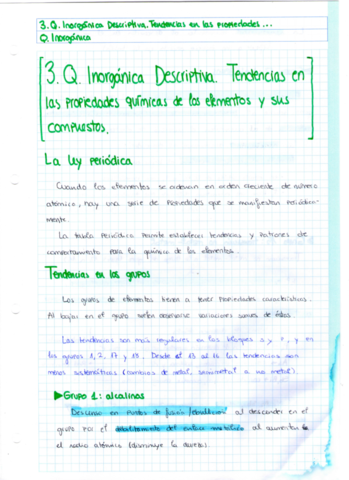 3. Q. Inorgánica Descriptiva. Tendencias en las propiedades ...
Q. Inorgánica
3. Q. Inorgánica Descriptiva. Tendencias en
las propiedades químicas de los elementos y sus
compuestos.
La ley periódica
Cuando los elementos se ordenan en orden creciente de número
atómico, hay una serie de propiedades que se manifiestan periódica-
mente.
La tabla periódica permite establecer tendencias y patrones de
comportamiento para la química de los elementos.
Tendencias en los grupos
Los grupos de elementos tienen a tener propiedades características.
Al bajar en el grupo suelen observarse variaciones suaves de éstas.
Las tendencias son más regulares en los bloques s y p, y en
los grupos 1, 2, 17 y 18. Desde el 13 al 16 las tendencias son
menos sistemáticas (cambios de metal, semimetal a no metal).
Grupo 1: alcalinos
Descenso en puntos de fusión/ebullición al descender en el
grupo por el debilitamiento del enlace metálico al aumentar
el radio atómico (disminuye la dureza).